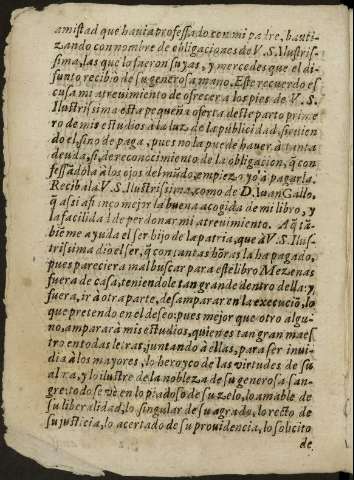 amistad que havia professado con mi padre, bauti-
zando con nombre de obligaciones de V.S. Ilustris-
sima, las que lo fueron suyas, y mercedes que el di-
funto recibiò de su generosa mano. Este recuerdo es-
cusa mi atrevimiento de ofrecer à los pies de V.S.
Ilustrissima esta pequeña oferta deste parto prime-
ro de mis estudios à la luz de la publicidad, sirvien
do el, sino de paga, pues no la puede haver à tanta
deuda, si, de reconocimiento de la obligacion, q̃ con
fessãdola à los ojos del mũdo, empieço yo à pagarla.
Recibala V.S. Ilustrissima, como de D. Iuan Gallo,
q̃ assi afianço mejor la buena acogida de mi libro, y
la facilidad de perdonar mi atrevimiento. A q̃ tã-
biẽ me ayuda el ser hijo de la patria, que à V.S. Ilus-
trissima dio el ser, q̃ con tantas hõras la ha pagado,
pues pareciera mal buscar para este libro Mezenas
fuera de casa, teniendole tan grande dentro della: y
fuera, ir à otra parte, desamparar en la execuciõ, lo
que pretendo en el deseo: pues mejor que otro algu-
no, ampararà mis estudios, quien es tan gran maes
tro en todas letras, juntando à ellas, para ser invi-
dia à los mayores, lo heroyco de las virtudes de su
alma, y lo ilustre de la nobleza de su generosa san-
gre: todo se vè en lo piadoso de su zelo, lo amable de
su liberalidad, lo singular de su agrado, lo recto de
su justicia, lo acertado de su providencia, lo solicito
de